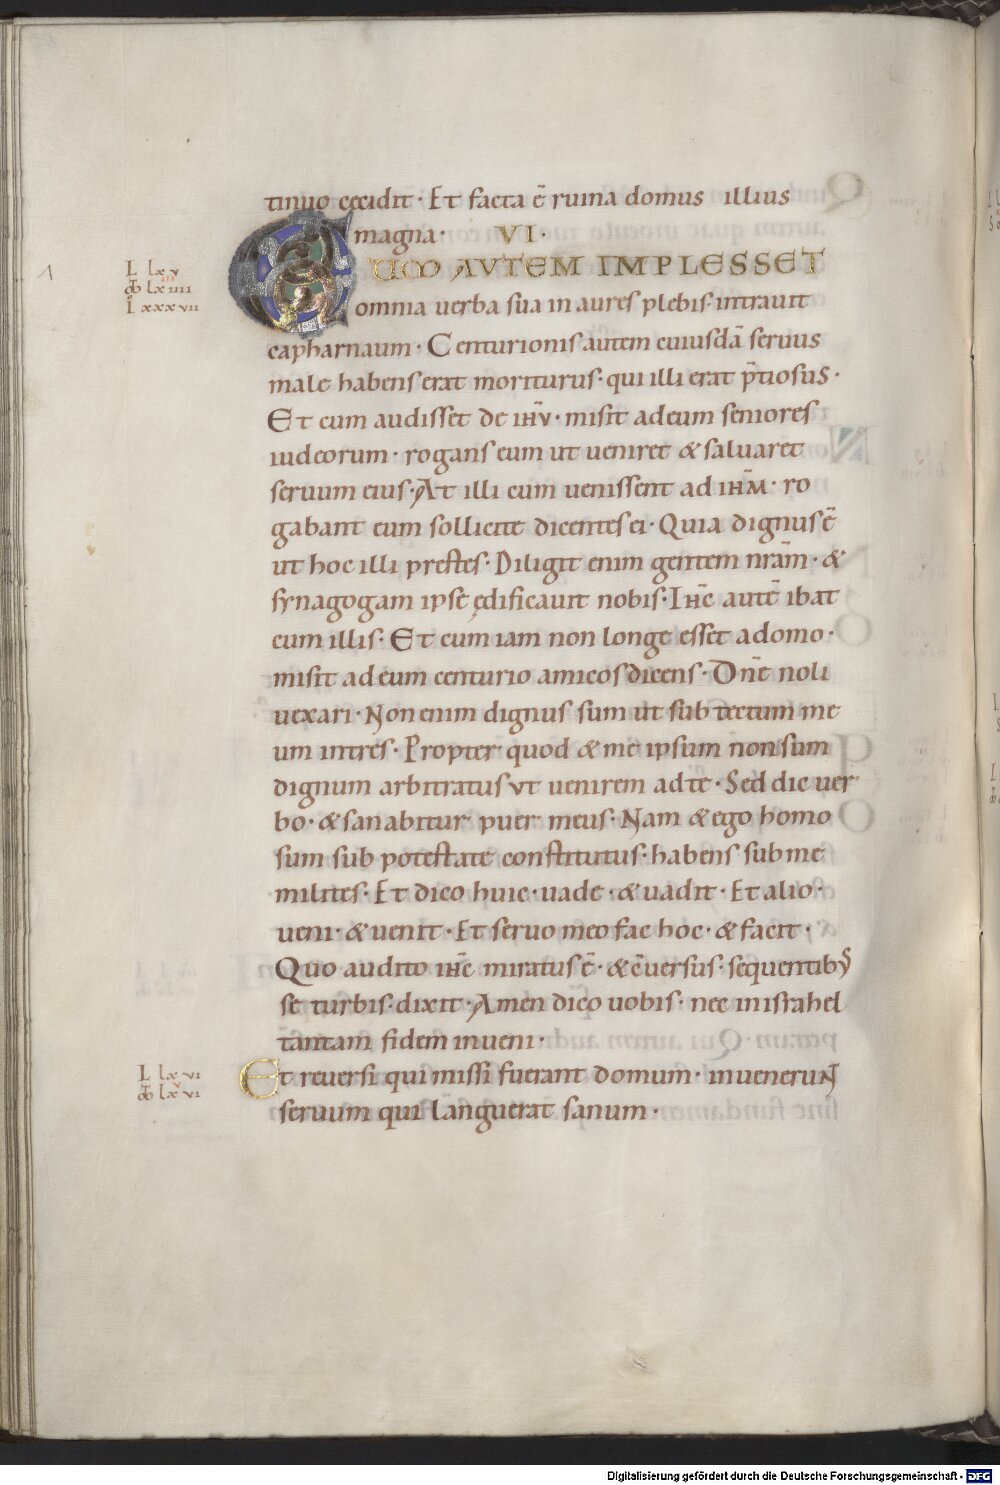 tinuo cecidit · Et facta ē ruina domus illius
magna · VI ·
CUM AVTEM IMPLESSET
L lxv
oħ lxiiii
I lxxxvii
omnia uerba sua in aures plebis · intrauit
capharnaum · Centurionis autem cuiusdā seruus
male habens erat moriturus · qui illi erat p̄tiosus ·
Et cum audisset de ihū · misit ad eum seniores
iudeorum · rogans eum ut ueniret & saluaret
seruum eius · At illi cum uenissent ad ihm̄ · ro
gabant eum sollicite dicentes ei · Quia dignus ē
ut hoc illi prestes · Diligit enim gentem nrām · &
synagogam ipse ędificauit nobis · Ihc̄ autē ibat
cum illis · Et cum iam non longe esset a domo ·
misit ad eum centurio amicos dicens · Dnē noli
uexari · Non enim dignus sum ut sub tectum me
um intres · Propter quod & me ipsum non sum
dignum arbitratus vt uenirem ad te · Sed dic uer
bo · & sanabitur puer meus · Nam & ego homo
sum sub potestate constitutus · habens sub me
milites · Et dico huic · uade · & uadit · Et alio ·
ueni · & uenit · Et seruo meo fac hoc · & facit ·
Quo audito ihc̄ miratus ē · & c̄uersus · sequentibꝰ
se turbis · dixit · Amen dico uobis · nec in israhel
tantam fidem inueni ·
L lxvi
oħ lxvi
Et reuersi qui missi fuerant domum · inuenerunt
seruum qui languerat sanum ·
Digitalisierung gefördert durch die Deutsche Forschungsgemeinschaft - DFG